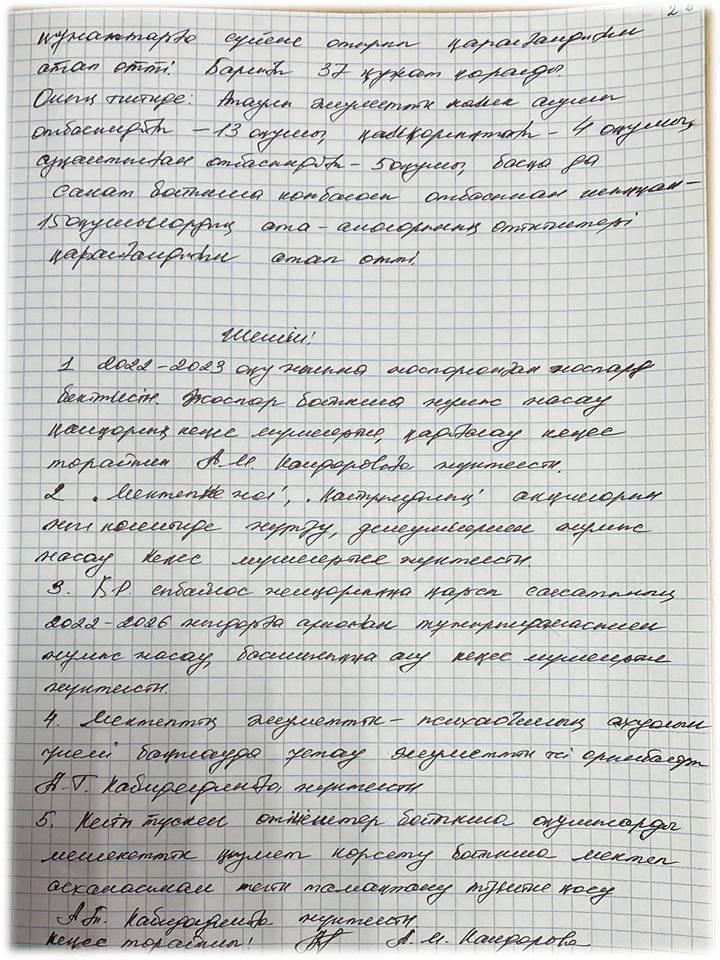 құжаттарға сүйене отырып қаралғандығын
атап өтті. Барлығы 37 құжат қаралды.
Оның ішінде: Атаулы әлеуметтік көмек алушы
отбасынан – 13 оқушы, қамқорлықтағы – 4 оқушы,
отбасынан – 5 оқушы, басқа да
санат бойынша көпбалалы отбасынан шыққан –
15 оқушылардың ата-аналарының өтініштері
қаралғандығын атап өтті.
Шешім!
1 2022–2023 оқу жылына жоспарланған жоспар
бекітілсін. Жоспар бойынша жұмыс жасау
қамқорлық кеңес мүшелеріне, қадағалау кеңес
төрайымы А.М. Каидароваға жүктелсін.
2 "Мектепке жол", "Қамқорлық" акциясын
жүргізу, демеушілермен жұмыс
жасау кеңес мүшелеріне жүктелсін
3. ҚР. сыбайлас жемқорлыққа қарсы саясатының
2022–2026 жылдарға арналған тұжырымдамасымен
жұмыс жасау, басшылыққа алу кеңес мүшелеріне
жүктелсін.
4. Мектептің әлеуметтік – психологиялық ахуалын
үнемі бақылауда ұстау әлеуметтік ісі орынбасары
А.Т. жүктелсін
5. Келіп түскен өтініштер бойынша оқушыларды
мемлекеттік қызмет көрсету бойынша мектеп
асханасынан тегін тамақтану тізіміне қосу
А.Т. жүктелсін
Кеңес төрайымы: А.М. Каидарова